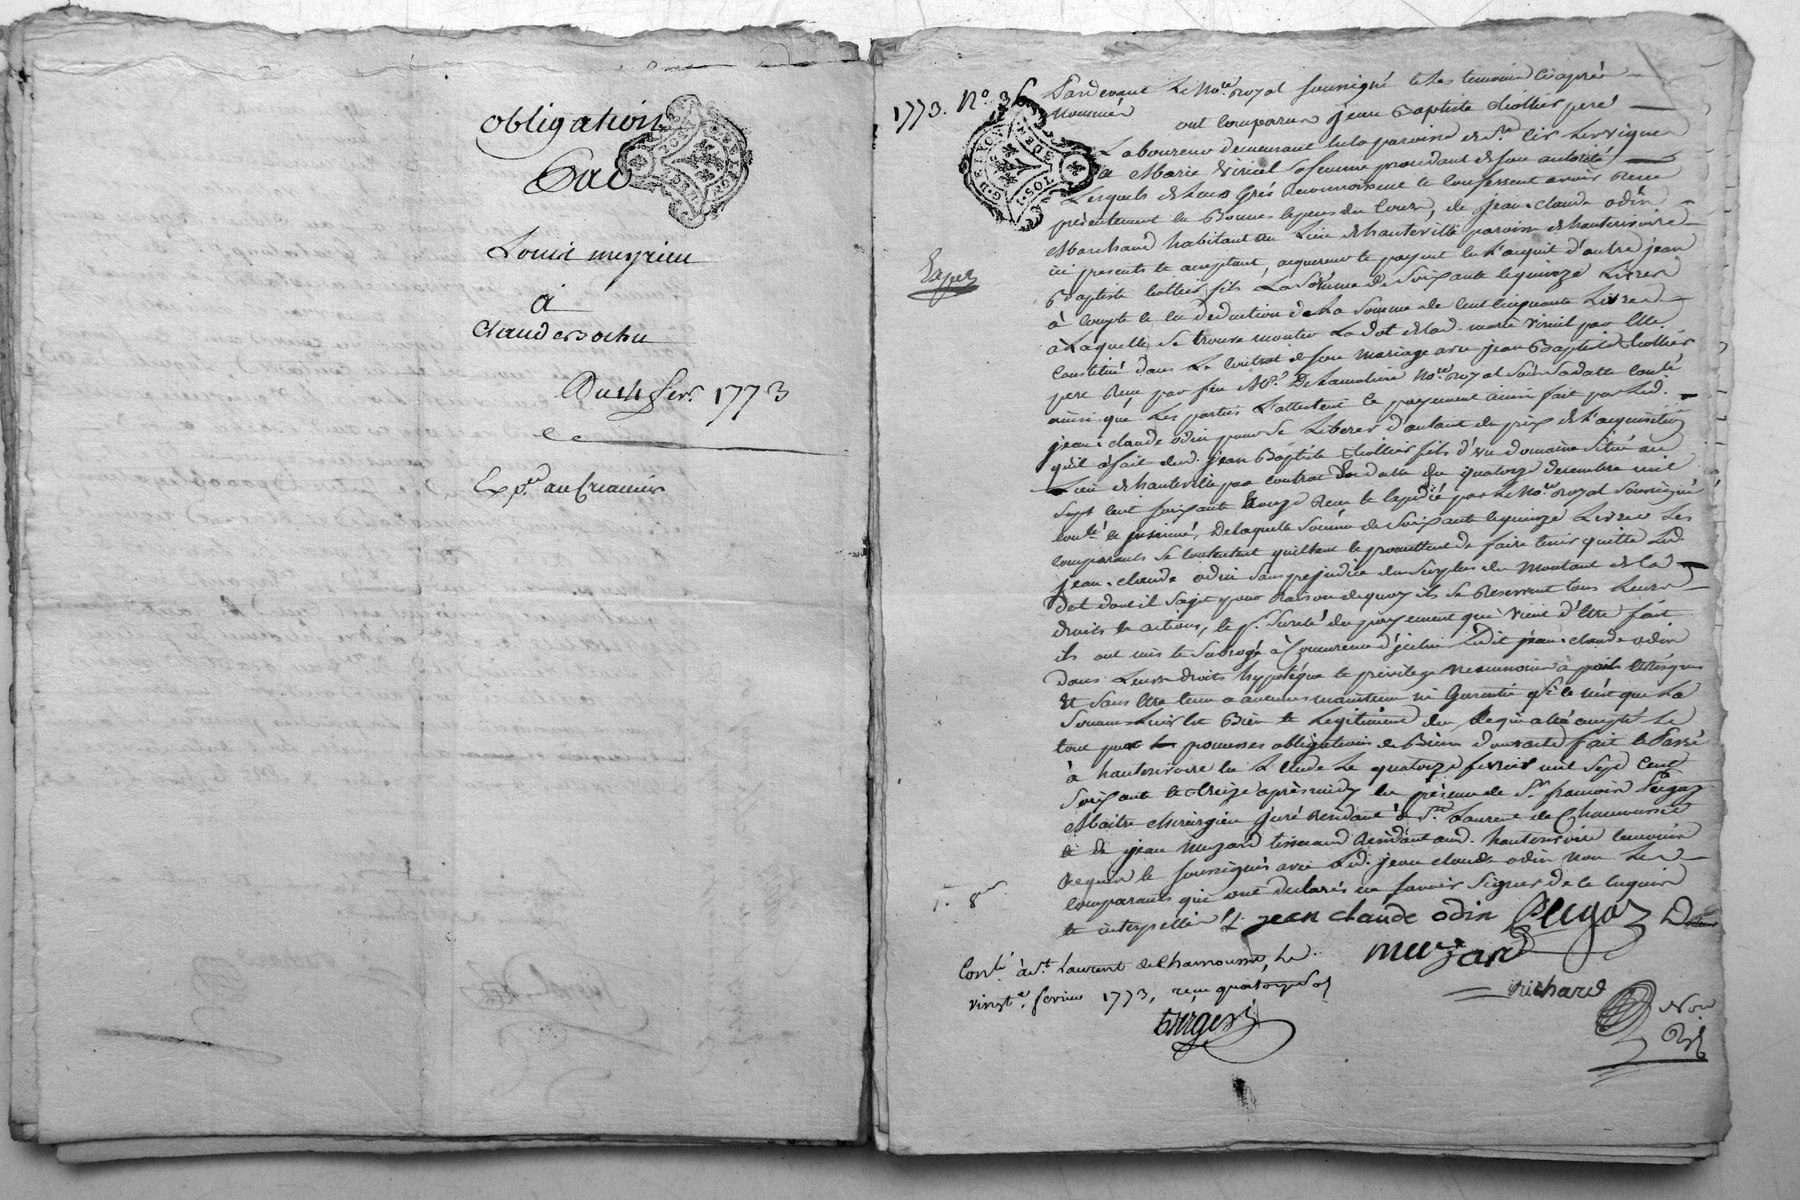 obligation
Par
Louis meyrieu
à
Claude
Du 14 fevr. 1773
Exp.é au Creancier
1773. No. 36
Pardevant Le No.re royal soussigné et les temoins cy après
nommés ont comparu jean Baptiste Chollier pere
Laboureur demeurant en la paroisse de St. Cir Les vignes
& Marie Viricel sa femme procedant de son autorité
Lesquels de Leurs Grés Reconnoissent et confessent avoir Reçu
présentement en Bonnes especes du Cours, de jean-claude odin
Marchand habitant au Lieu de hauteville paroisse de hauterivoire
ici present et acceptant, acquereur et payant en L'acquit d'autre jean
Baptiste Chollier fils La Somme de Soixante et quinze Livres
à Compte et en deduction de La Somme de Cent Cinquante Livres
à Laquelle se trouve monter La dot de lad. marie Viricel par Elle
Constitué dans Le Contrat de son Mariage avec jean Baptiste Chollier
pere Reçu par feu Me. No.re royal sous sa datte Conlé
ainsi que Les parties L'attestent le payement ainsi fait par Led.
jean-claude odin pour se Liberer d'autant du prix de L'acquisition
qu'il a fait dud. jean Baptiste Chollier fils d'un domaine Situé au
Lieu de hauteville par contrat En datte du quatorze decembre mil
Sept Cent soixante Reçu et expedié par Le No.re royal Soussigné
Conlé et insinué, De laquelle Somme de Soixante et quinze Livres Les
comparants se Contentent quittent et promettent de faire tenir quitte Led.
jean-claude odin sans prejudice du Surplus du Montant de la
dot dont il s'agit pour Raison de quoy ils se Reservent tous Leurs
droits et actions, et pr. Sureté du payement qui Vient d'être fait
ils ont mis et Subrogé à Concurence d'jcelui Ledit jean-claude odin
dans Leurs droits hypotéque et privilege
Et Sans être tenu a aucune maintenue ni Garentie si ce n'est que La
Somme Leur Est Bien et Legitimement due
tout par promesses obligations de Biens fait et Passé
à hauterivoire en L'Etude Le quatorze fevrier mil Sept Cent
Soixante et treize après midy En présence de Sr. françois Pegoz
Maitre chirurgien juré Residant à St. Laurent de Chamousset
et de jean Muzard tisserand Residant aud. hauterivoire temoins
Requis et soussignés avec Led. jean claude odin non Les
comparants qui ont declarés ne savoir Signer de ce Enquis
et interpellés jean claude odin Pegoz
muzard
richard
Conlé à St. Laurent de Chamousset, Le
vingt fevrier 1773, reçu quatorze Sols